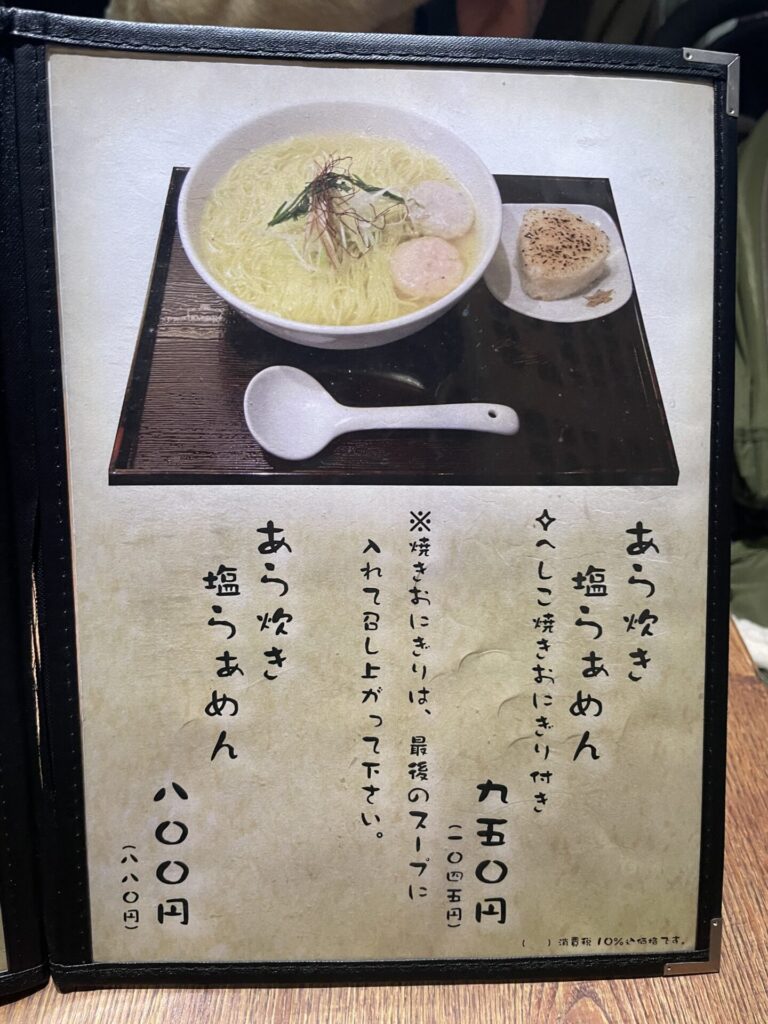 あら炊き
塩らぁめん
✧へしこ焼きおにぎり付き
九五〇円
(一〇四五円)
※焼きおにぎりは、最後のスープに
入れて召し上がって下さい。
あら炊き
塩らぁめん
八〇〇円
(八八〇円)
(　)消費税10%込価格です。